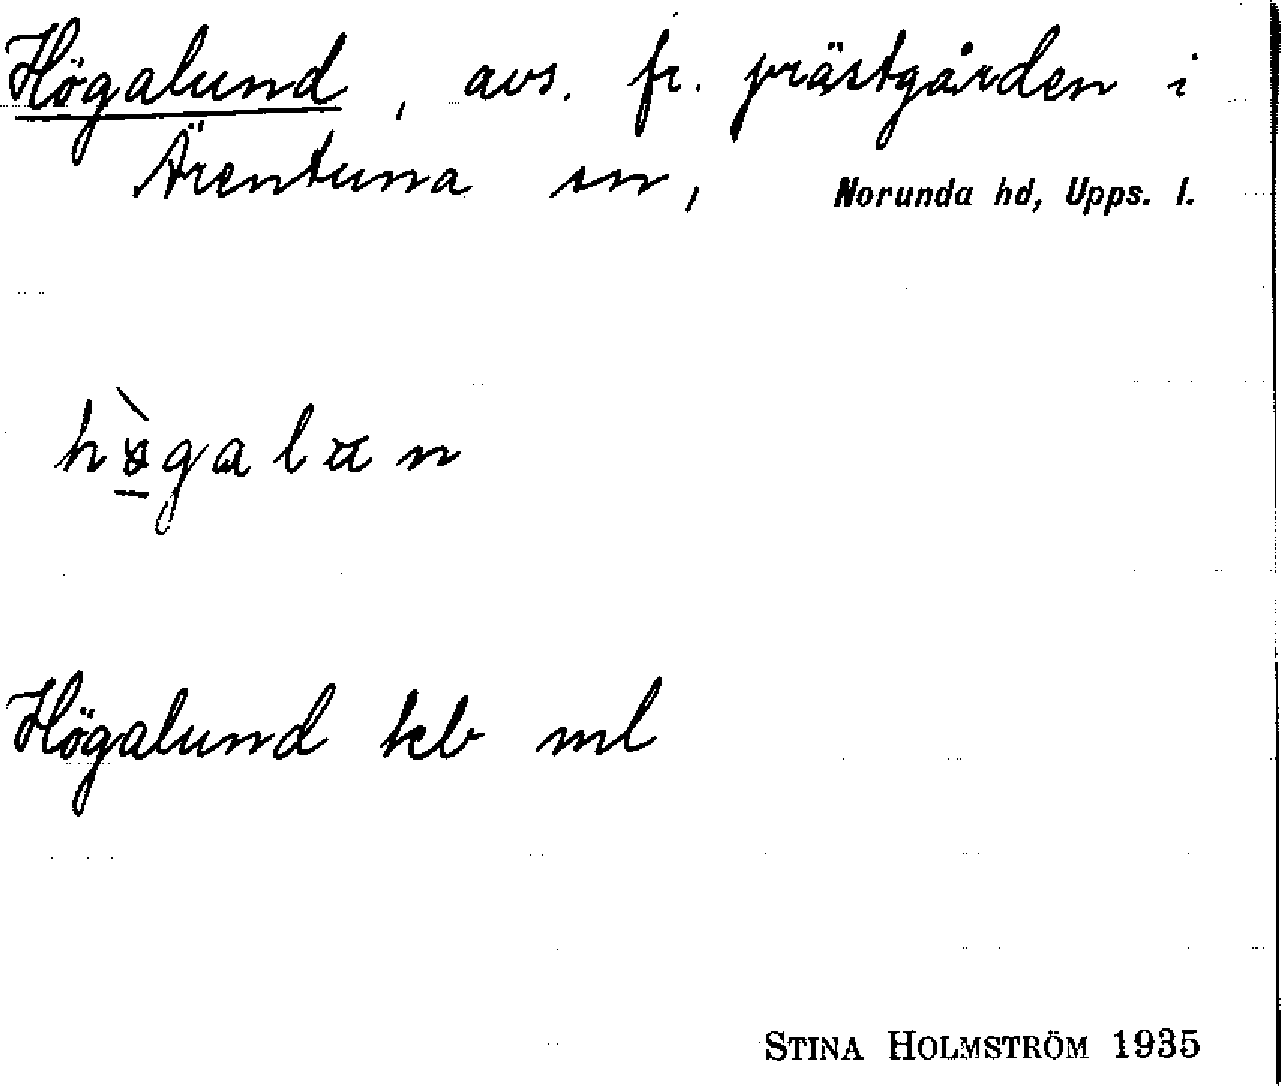 Högalund, avs. fr. prästgården i
Ärentuna sn, Norunda hd, Upps. l.
Högalund kb ml
STINA HOLMSTRÖM 1935